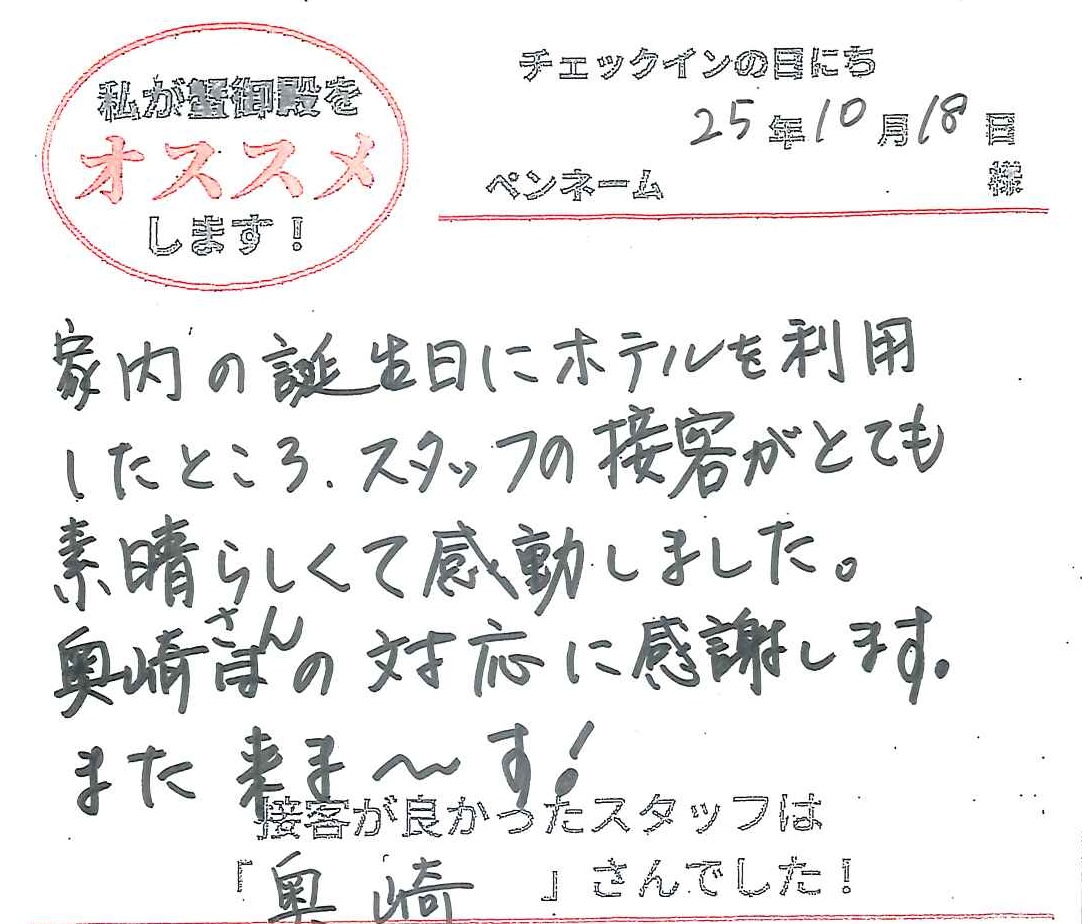 私が蟹御殿を
オススメ
します！
チェックインの日にち
25年10月18日
ペンネーム 様
家内の誕生日にホテルを利用
したところ、スタッフの接客がとても
素晴らしくて感動しました。
奥崎さんの対応に感謝します。
また来ま〜す！
接客が良かったスタッフは
「奥崎」さんでした！